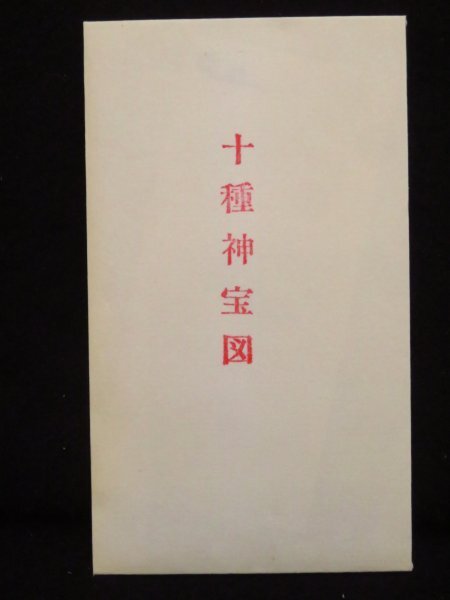 十種神宝図